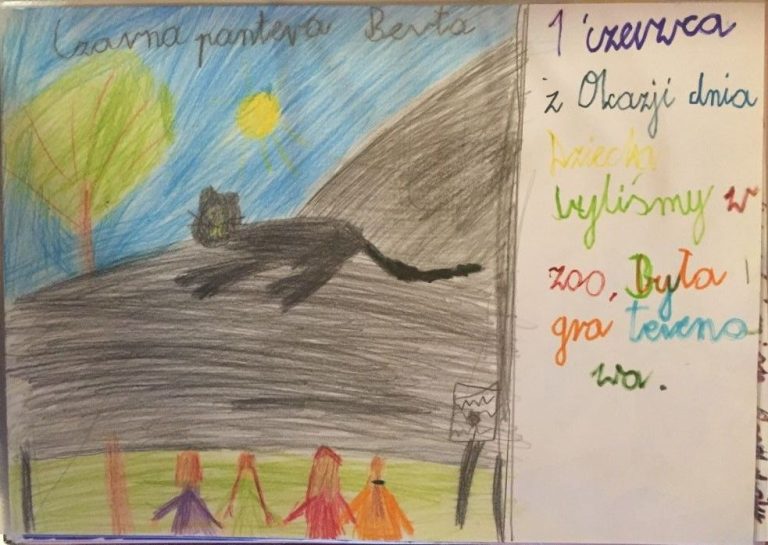 Czarna pantera Berta
1 czerwca
z Okazji dnia
Dziecka
byliśmy w
zoo, Była
gra tereno
wa.